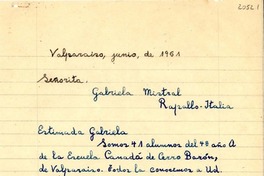 2052 1
Valparaíso, junio, de 1951
Señorita.
Gabriela Mistral
Rapallo-Italia
Estimada Gabriela
Somos 41 alumnos del 4º año A
de la Escuela Canadá de Cerro Barón,
de Valparaíso. Todos la conocemos a Ud.